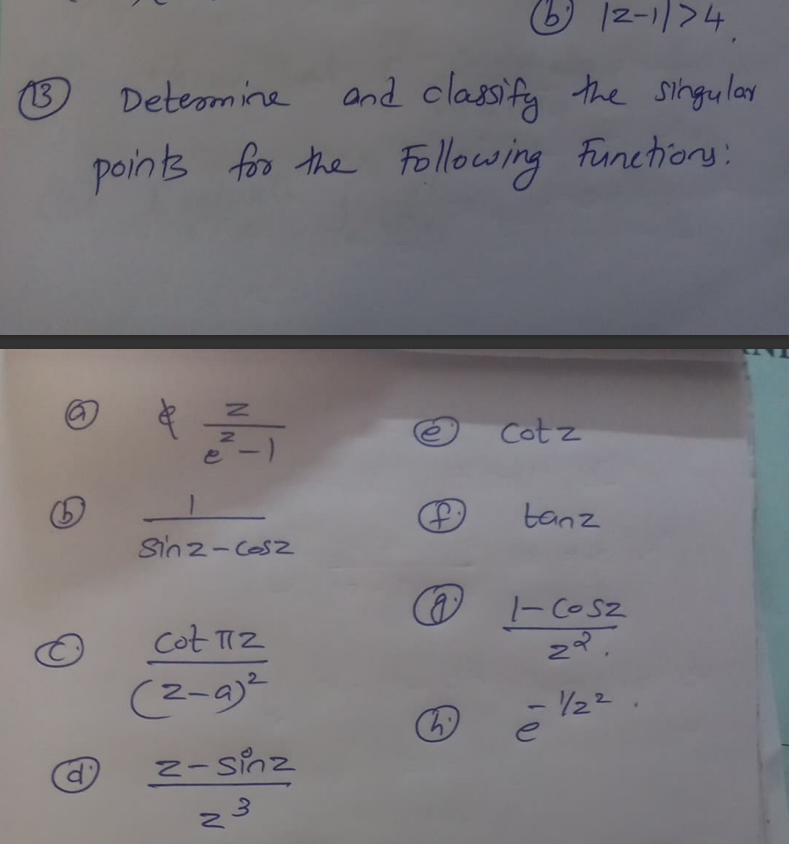 (b) |z-1|>4.
(13) Determine and classify the singular
points for the Following Functions:
(a) z/(e^z-1)
(b) 1/(sinz-cosz)
(c) cot πz/(z-a)²
(d) z-sinz/z³
(e) cotz
(f) tanz
(g) 1-cosz/z².
(h) e^-1/z².